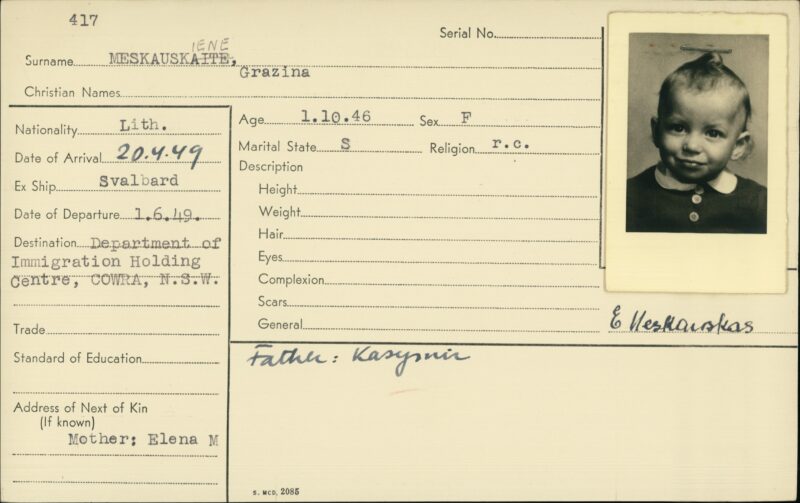 417
Serial No.
IENE
Surname MESKAUSKAITE,
Grazina
Christian Names
Nationality Lith.
Date of Arrival 20.4.49
Ex Ship Svalbard
Date of Departure 1.6.49.
Destination Department of
Immigration Holding
Centre, COWRA, N.S.W.
Trade
Standard of Education
Address of Next of Kin
(If known)
Mother: Elena M
Age 1.10.46 Sex F
Marital State S Religion r.c.
Description
Height
Weight
Hair
Eyes
Complexion
Scars
General
E Meskauskas
Father: Kasysmir
S. MCD. 2085